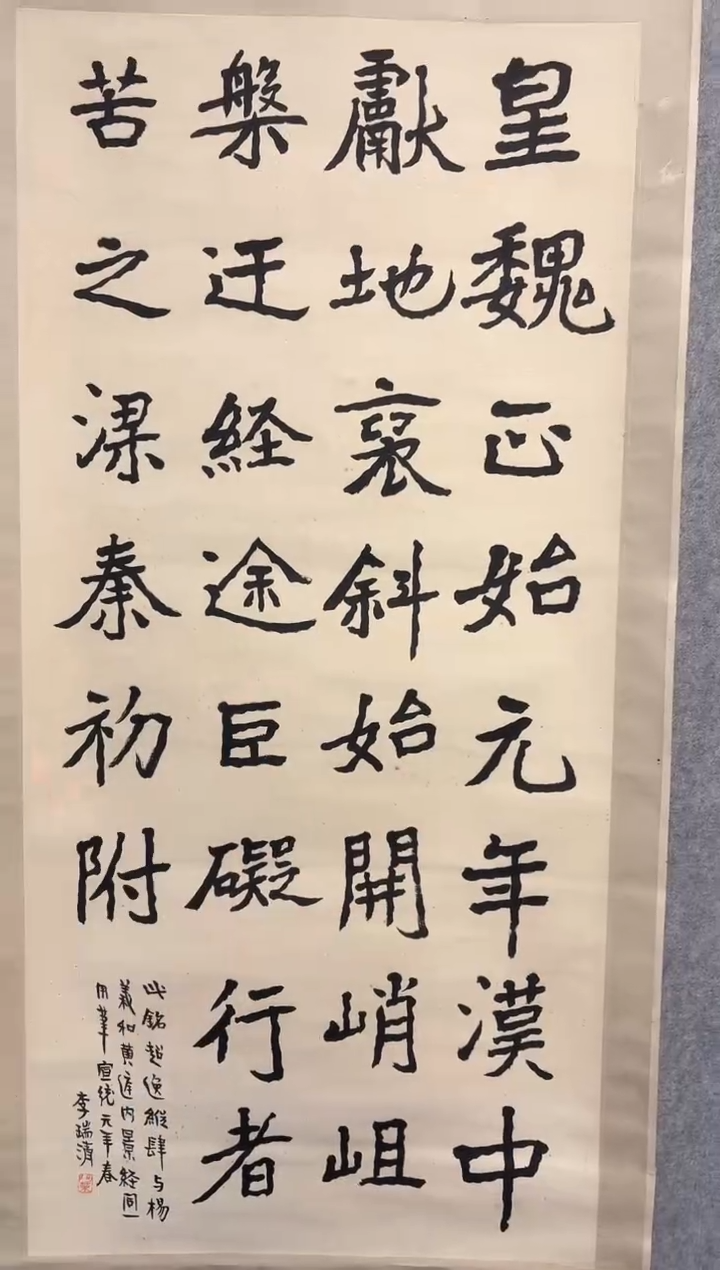 皇魏正始元年漢中
獻地襃斜始開峭岨
槃迂経途巨礙行者
苦之深秦初附
此銘超逸縱肆与楊
羲和黄庭内景経同一
用筆宣統元年春
李瑞清